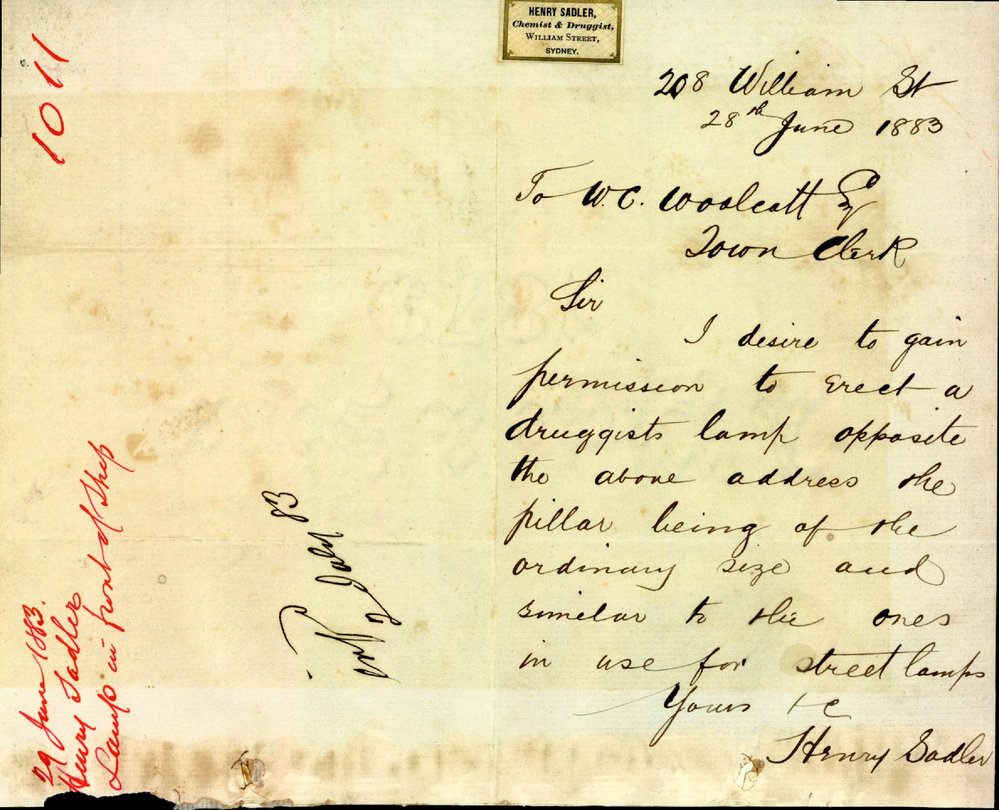 HENRY SADLER,
Chemist & Druggist,
WILLIAM STREET,
SYDNEY.
208 William St
28th June 1883
To W. C. Woolcott Esq
Town Clerk
Sir
I desire to gain
permission to Erect a
druggists lamp opposite
the above address the
pillar being of the
ordinary size and
similar to the ones
in use for street lamps
Yours &c
Henry Sadler
1011
29 June 1883.
Henry Sadler
Lamp in front of Shop
2 July 83